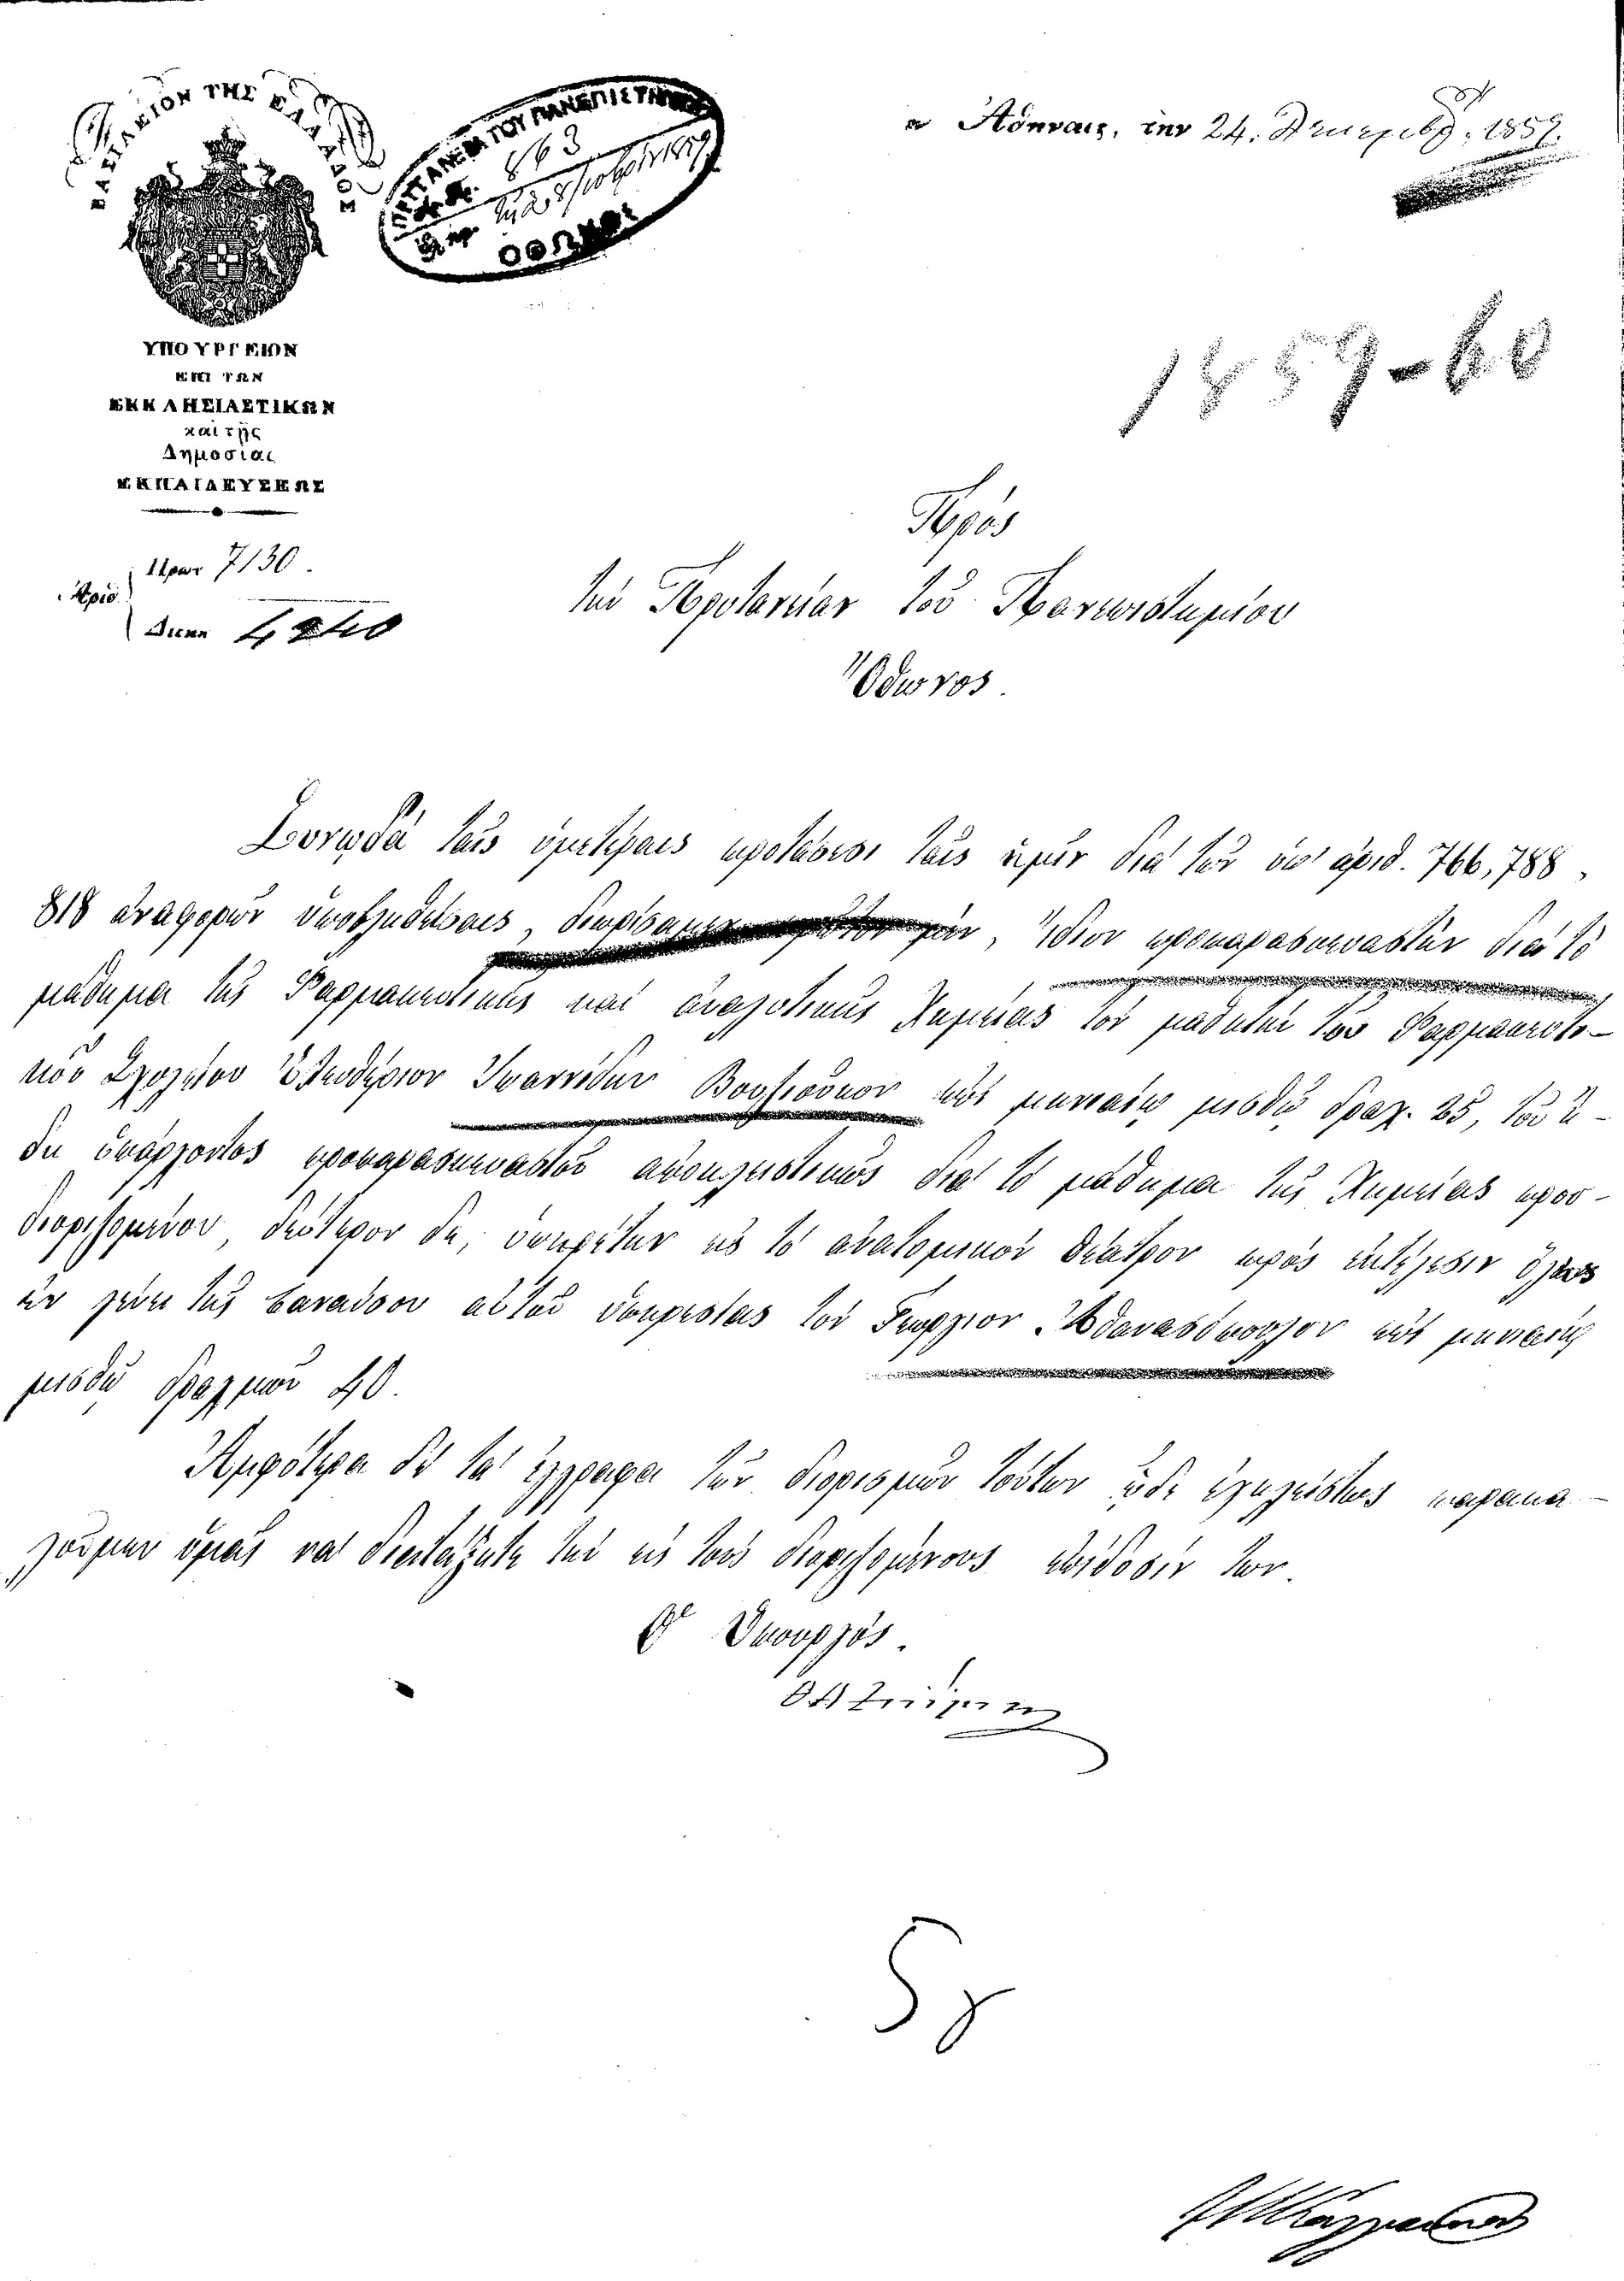 ΒΑΣΙΛΕΙΟΝ ΤΗΣ ΕΛΛΑΔΟΣ
ΠΡΥΤΑΝΕΙΑ ΤΟΥ ΠΑΝΕΠΙΣΤΗΜΙΟΥ
863
ΟΘΩΝΟΣ
Ἀθήναις, τὴν 24. Δεκεμβρ. 1859.
1859-60
ΥΠΟΥΡΓΕΙΟΝ
ΕΠΙ ΤΩΝ
ΕΚΚΛΗΣΙΑΣΤΙΚΩΝ
καὶ τῆς
Δημοσίας
ΕΚΠΑΙΔΕΥΣΕΩΣ
Πρωτ 7130.
Ἀριθ.
Διεκπ
Πρὸς
τὴν Πρυτανείαν τοῦ Πανεπιστημίου
Ὄθωνος.
Συνῳδὰ ταῖς ὑμετέραις προτάσεσι ταῖς ἡμῖν διὰ τῶν ὑπ' ἀριθ. 766, 788,
818 ἀναφορῶν ὑποβληθείσαις, διωρίσαμεν πρῶτον μέν, ἴδιον προπαρασκευαστὴν διὰ τὸ
μάθημα τῆς Φαρμακευτικῆς καὶ ἀναλυτικῆς Χημείας τὸν μαθητὴν τοῦ Φαρμακευτι-
κοῦ Σχολείου Ἐλευθέριον Ἰωαννίδην Βουλισσῖνον ἐπὶ μηνιαίῳ μισθῷ δραχ. 25, τοῦ ἤ-
δη ὑπάρχοντος προπαρασκευαστοῦ ἀποκλειστικῶς διὰ τὸ μάθημα τῆς Χημείας προσ-
διωρισμένου, δεύτερον δὲ, ὑπηρέτην εἰς τὸ ἀνατομικὸν θέατρον πρὸς ἐκτέλεσιν ὅλων
ἐν γένει τῆς βαναύσου αὐτοῦ ὑπηρεσίας τὸν Γεώργιον Ἀθανασόπουλον ἐπὶ μηνιαίῳ
μισθῷ δραχμῶν 40.
Ἀμφότερα δὲ τὰ ἔγγραφα τῶν διορισμῶν τούτων ὧδε ἐγκλείοντες παρακα-
λοῦμεν ὑμᾶς νὰ διατάξητε τὴν εἰς τοὺς διορισμένους ἐπίδοσίν των.
Ὁ Ὑπουργός.